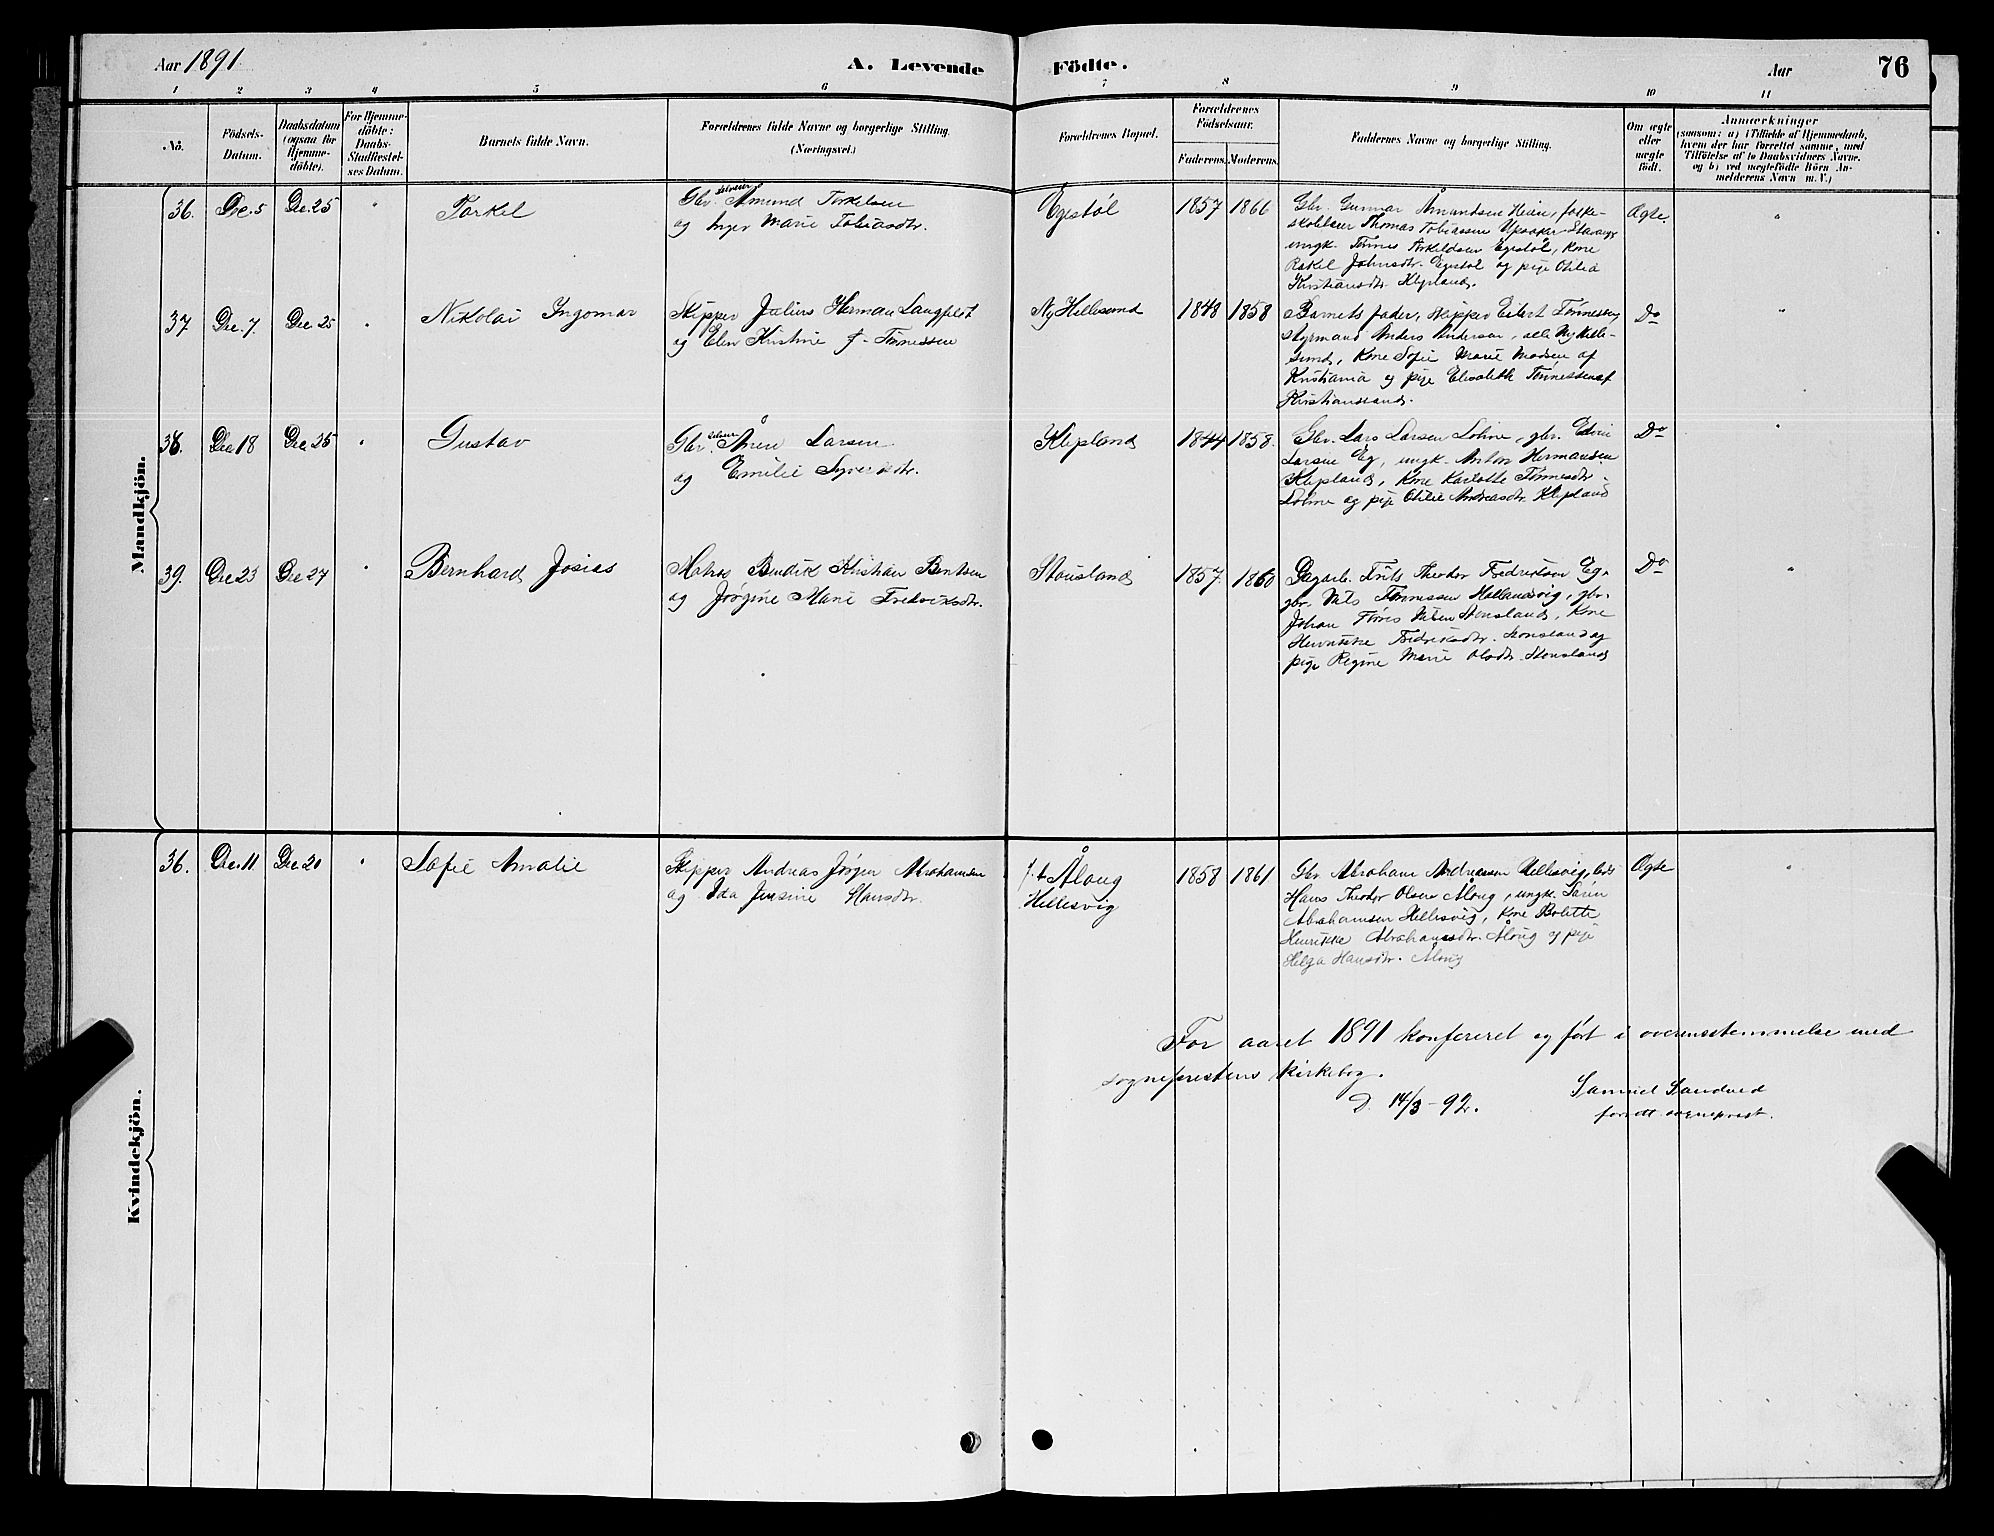 Aar 1891
A. Levende
Födte.
Aar
76
1 2 3 4 5 6 7 8 9 10 11
No.
Födsels-
Datum.
Daabsdatum
(ogsaa for
Hjemme-
döbte).
For Hjemme-
döbte:
Daabs-
Stadfæstel-
ses Datum.
Barnets fulde Navn.
Forældrenes fulde Navne og borgerlige Stilling.
(Næringsvei.)
Forældrenes Bopæl.
Forældrenes
Födselsaar.
Faderens.
Moderens.
Faddernes Navne og borgerlige Stilling.
Om ægte
eller
uægte
født.
Anmærkninger
(saasom: a) i Tilfælde af Hjemmedaab,
hvem der har forrettet samme, med
Tilföielse af to Daabsvidners Navne,
og b) ved uægtefödte Börn An-
melderens Navn m. V.)
Mandkjön.
36. Dec. 5 Dec. 25 " Torkel
Gbr. selveier Åmund Torkelsen
og Inger Marie Tobiasdtr.
Egestøl 1857 1866
Gbr. Gunnar Åmundsen Heien, folke-
skolelærer Thomas Tobiassen
ungk. Tønnes Torkildsen Egestøl, kone
Rakel Johnsdtr. Egestøl og pige Otilia
Kristiansdtr. Klepland.
Ægte. "
37 Dec. 7. Dec 25 " Nikolai Ingomar
Skipper Julius Herman Langfeldt
og Elen Kristine f. Tønnessen
Ny Hellesund 1848 1858
Barnets fader, skipper Eilert Tønnessen,
styrmand Anders Andersen, alle Ny Helle-
sund, kone Sofie Marie Madsen af
Kristiania og pige Elisabeth Tønnessen af
Kristianssand.
Do "
38. Dec. 18 Dec 25 " Gustav
Gbr. selveier Åneu Larsen
og Emilie Syversdtr.
Klepland 1844 1858.
Gbr. Lars Larsen Lohne, gbr. Edvin
Larsen Eg, ungk. Anton Hermansen
Klepland, kone Karlotte Tønnesdtr.
Lohne og pige Otilie Andreasdtr. Klepland
Do "
39. Dec 23 Dec 27 " Bernhard Josias
Matros Bendik Kristian Bentsen
og Jørgine Marie Fredriksdtr.
Stousland 1857. 1860
Dagarb. Frits Theodor Fredriksen Eg,
gbr. Nils Tønnessen Hallandsvig, gbr.
Johan Tønnes Stousland, kone
Henrikke Fredriksdtr. Stousland og
pige Regine Marie Olsdtr. Stousland
Do
Kvindekjön.
36. Dec. 11 Dec 20 " Sofie Amalie
Skipper Andreas Jørgen Abrahamsen
og Ida Jensine Hansdtr.
f. t. Åloug
Hellesvig
1858 1861
Gbr. Abraham Andreassen Hellesvig, lods
Hans Theodor Olsen Åloug, ungk. Søren
Abrahamsen Hellesvig, kone Bolette
Henrikke Abrahamsdtr. Åloug og pige
Helga Hansdtr. Åloug
Ægte "
For aaret 1891 konfereret og ført i overensstemmelse med
sogneprestens kirkebog.
D. 14/3-92. Samuel Sandved
forrett. sogneprest.